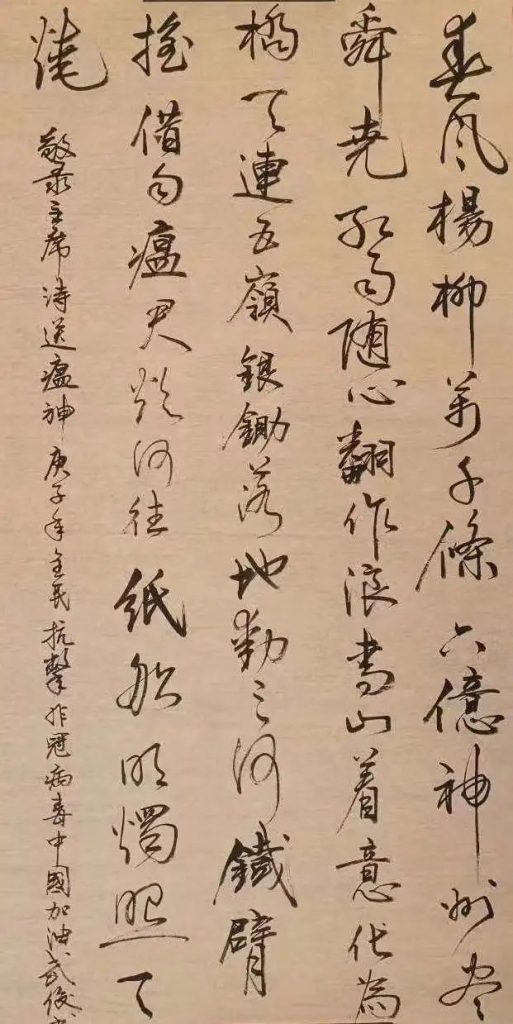 春风楊柳萬千條六億神州尽
舜尧红雨随心翻作浪青山着意化為
橋天連五嶺銀鋤落地動三河鐵臂
摇借问瘟君欲何往紙船明燭照天
燒
敬录主席诗送瘟神庚子年全民抗擊非冠病毒中國加油武俊